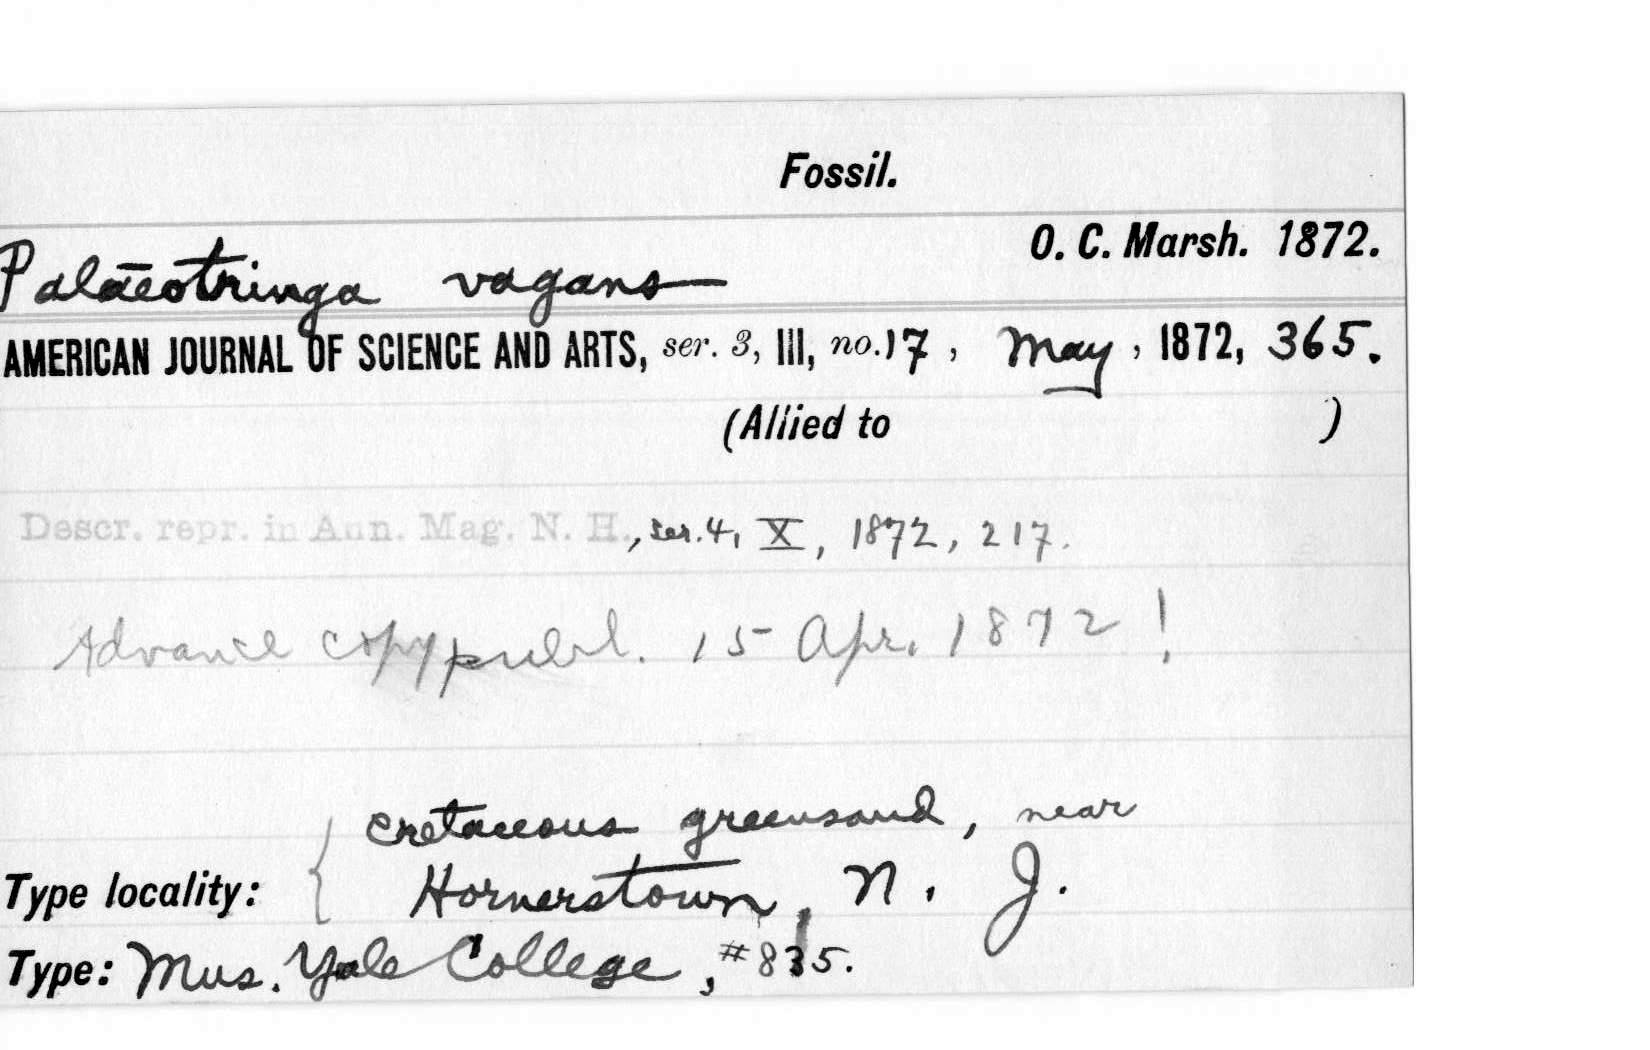 Fossil.
O. C. Marsh. 1872.
Palaeotringa vagans
AMERICAN JOURNAL OF SCIENCE AND ARTS, ser. 3, III, no. 17, May, 1872, 365.
(Allied to )
Descr. repr. in Ann. Mag. N. H., ser. 4, X, 1872, 217.
Advance copy publ. 15 Apr. 1872!
Cretaceous greensand, near
Type locality: Hornerstown, N. J.
Type: Mus. Yale College, #835.